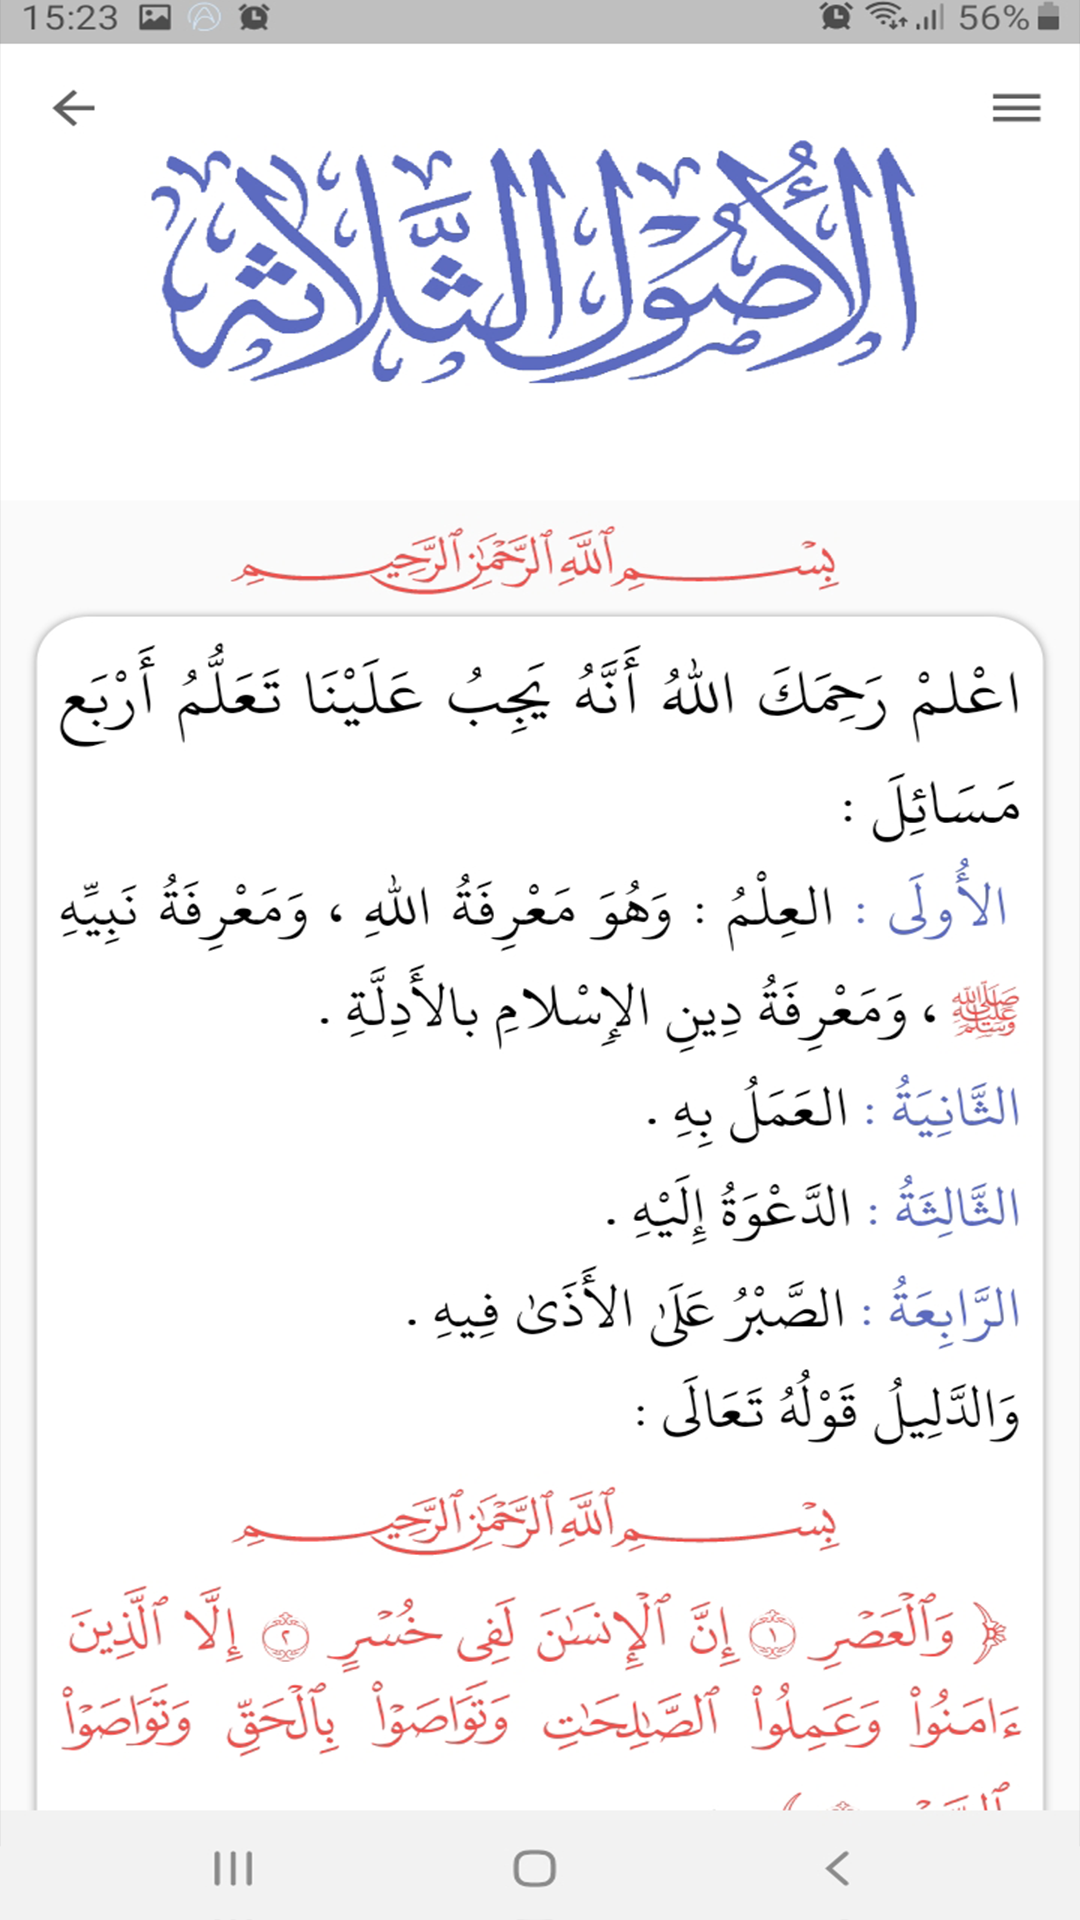 15:23 56%
الأُصُول الثَّلاثة
بِسْمِ ٱللَّهِ ٱلرَّحْمَٰنِ ٱلرَّحِيمِ
اعْلمْ رَحِمَكَ اللهُ أَنَّهُ يَجِبُ عَلَيْنَا تَعَلُّمُ أَرْبَع
مَسَائِلَ :
الأُولَى : العِلْمُ : وَهُوَ مَعْرِفَةُ اللهِ ، وَمَعْرِفَةُ نَبِيِّهِ
ﷺ ، وَمَعْرِفَةُ دِينِ الإِسْلامِ بالأَدِلَّةِ .
الثَّانِيَةُ : العَمَلُ بِهِ .
الثَّالِثَةُ : الدَّعْوَةُ إِلَيْهِ .
الرَّابِعَةُ : الصَّبْرُ عَلَىٰ الأَذَىٰ فِيهِ .
وَالدَّلِيلُ قَوْلُهُ تَعَالَى :
بِسْمِ ٱللَّهِ ٱلرَّحْمَٰنِ ٱلرَّحِيمِ
﴿ وَٱلْعَصْرِ ١ إِنَّ ٱلْإِنسَٰنَ لَفِى خُسْرٍ ٢ إِلَّا ٱلَّذِينَ
ءَامَنُوا۟ وَعَمِلُوا۟ ٱلصَّٰلِحَٰتِ وَتَوَاصَوْا۟ بِٱلْحَقِّ وَتَوَاصَوْا۟